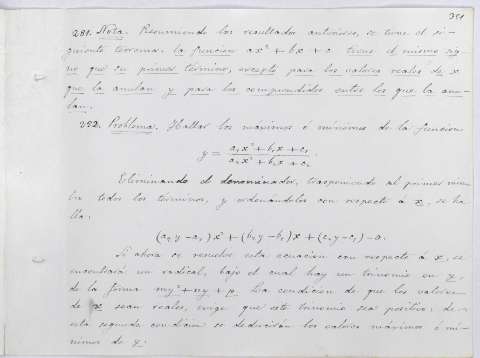 351
281. Nota. Resumiendo los resultados anteriores, se tiene el si-
guiente teorema. la funcion ax² + bx + c tiene el mismo sig-
no que su primer término, excepto para los valores reales de x
que la anulan y para los comprendidos entre los que la anu-
lan.
282. Problema. Hallar los máximos ó mínimos de la funcion
y = (a₁x² + b₁x + c₁) / (a₂x² + b₂x + c₂).
Eliminando el denominador, trasponiendo al primer miem-
bro todos los terminos, y ordenandolos con respecto á x, se ha-
lla:
(a₂y − a₁)x² + (b₂y − b₁)x + (c₂y − c₁) = 0.
Si ahora se resuelve esta ecuacion con respecto á x, se
encontrará un radical, bajo el cual hay un trinomio en y,
de la forma my² + ny + p. La condicion de que los valores
de x sean reales, exige que este trinomio sea positivo; de
esta segunda condicion se deducirán los valores máximos ó mí-
nimos de y.